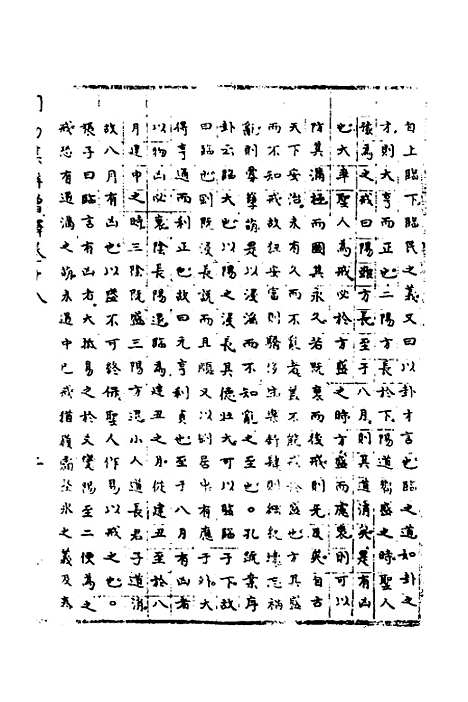 自上臨下臨民之義又曰以卦才言也臨之道如卦之
才則大亨而正也二陽方長於下陽道嚮盛之時聖人
豫為之戒曰陽雖方長至于八月則其道消矣是有凶
也大率聖人為戒必於方盛之時方盛而慮衰則可以
防其滿極而圖其永久若既衰而後戒則无及矣自古
天下安治未有久而不亂者蓋不能戒於盛也方其盛
而不知戒故狃安富則驕侈生樂舒肆則綱紀壞忘禍
亂則釁孽萌是以浸淫而不知亂之至也○孔疏案序
卦云臨大也以陽之浸長其德壯大可以監臨于下故
曰臨也剛既浸長說而且順又以剛居中有應于外大
得亨通而利正也故曰元亨利貞也至于八月有凶者
以物盛必衰陰長陽退臨為建丑之月從建丑至於八
月建申之時三陰既盛三陽方退小人道長君子道消
故八月有凶也以盛不可終保聖人作易以戒之也○
張子曰臨言有凶者大抵易之於爻變陽至二便為之
戒恐有過滿之萌未過中已戒猶履霜堅冰之義及泰